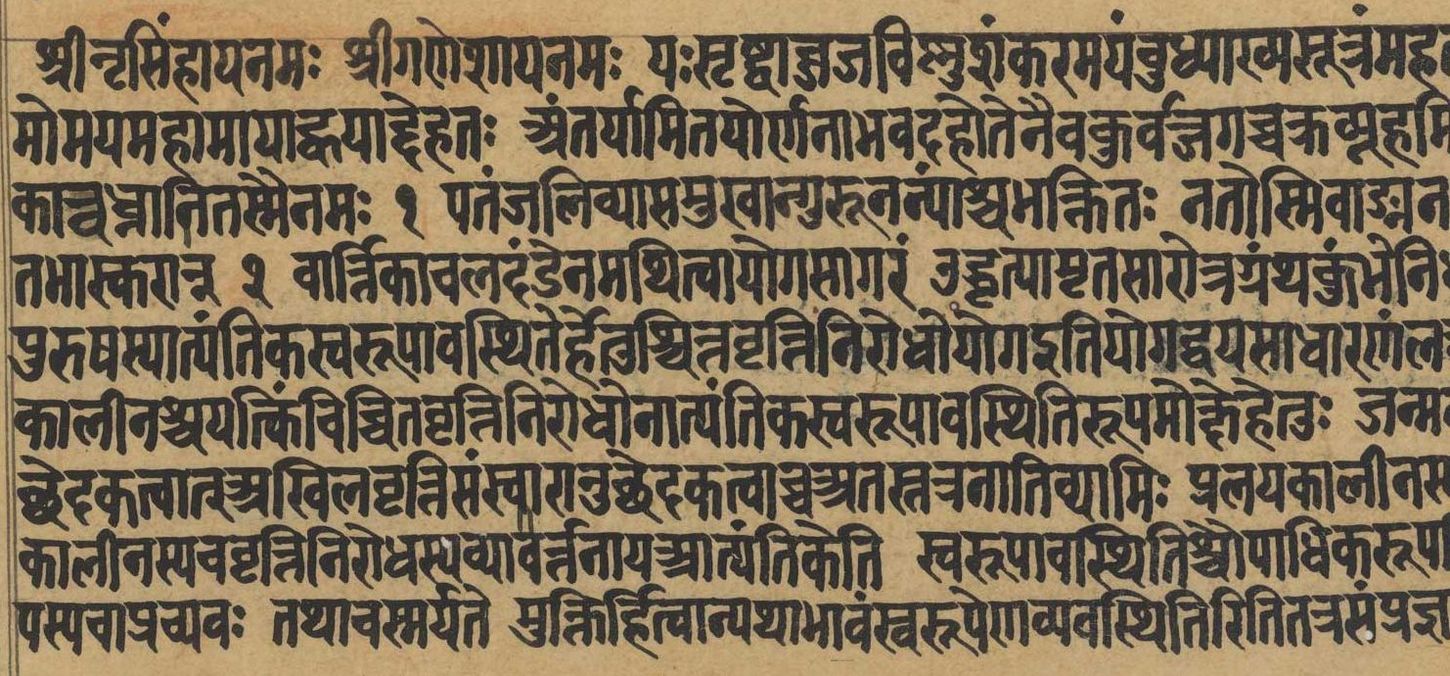 श्रीनृसिंहायनमः श्रीगणेशायनमः यःसृष्ट्वाब्जजविष्णुशंकरमयंबुध्याख्यसूत्रंमह
मोमयमहामायाह्वयाद्देहतः अंतर्यामितयोर्णनाभवदहोतेनैवकुर्वन्जगच्चक्रव्यूहमि
कान्बध्नातितस्मैनमः १ पतंजलिव्यासमुखान्गुरूनन्यांश्चभक्तितः नतोस्मिवाङ्मन
तभास्करान् २ वार्त्तिकाचलदंडेनमथित्वायोगसागरं उद्धृत्यामृतसारोत्रग्रंथकुंभेनि
पुरुषस्यात्यंतिकस्वरूपावस्थितेर्हेतुश्चित्तवृत्तिनिरोधोयोगइतियोगद्वयसाधारणंल
कालीनश्चयत्किंचिच्चितवृत्तिनिरोधोनात्यंतिकस्वरूपावस्थितिरूपमोक्षेहेतुः जन्म
च्छेदकत्वात्अखिलवृत्तिसंस्कारानुच्छेदकत्वाच्चअतस्तत्रनातिव्याप्तिः प्रलयकालीनस
कालीनस्यचवृत्तिनिरोधस्यव्यावर्त्तनायआत्यंतिकेति स्वरूपावस्थितिश्चौपाधिकरूपा
पस्यचाप्रच्यवः तथाचस्मर्यते मुक्तिर्हित्वान्यथाभावंस्वरूपेणव्यवस्थितिरितितत्रसंप्रज्ञा